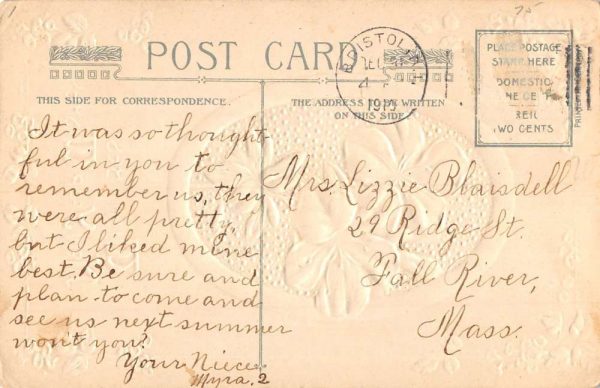 75
POST CARD
BRISTOL
4
1913
PLACE POSTAGE
STAMP HERE
DOMESTIC
ONE CENT
FOREIGN
TWO CENTS
THIS SIDE FOR CORRESPONDENCE.
THE ADDRESS TO BE WRITTEN
ON THIS SIDE
It was so thought-
ful in you to
remember us, they
were all pretty,
but I liked mine
best. Be sure and
plan to come and
see us next summer
won't you?
Your Niece,
Myra. 2
Mrs. Lizzie Blaisdell
29 Ridge St.
Fall River,
Mass.